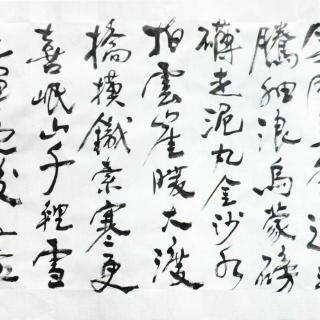 騰細浪烏蒙磅
礴走泥丸金沙水
拍雲崖暖大渡
橋橫鐵索寒更
喜岷山千裡雪